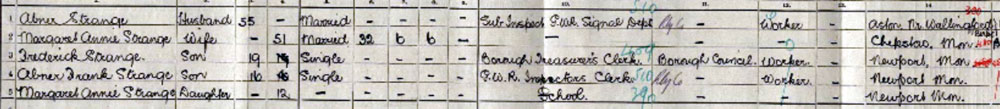 1 Abner Strange Husband 55 - Married Sub Inspect G.W.R. Signal Dept - Worker - Aston, Nr. Wallingford
2 Margaret Annie Strange Wife - 51 Married 32 6 6 - — - Chepstow, Mon.
3 Frederick Strange. Son 19 Single Borough Treasurer's Clerk. Borough Council. Worker - Newport, Mon
4 Abner Frank Strange Son 16 Single G.W.R. Inspectors Clerk - Worker - Newport Mon.
5 Margaret Annie Strange Daughter - 12 - School. 390 - - - Newport Mon.